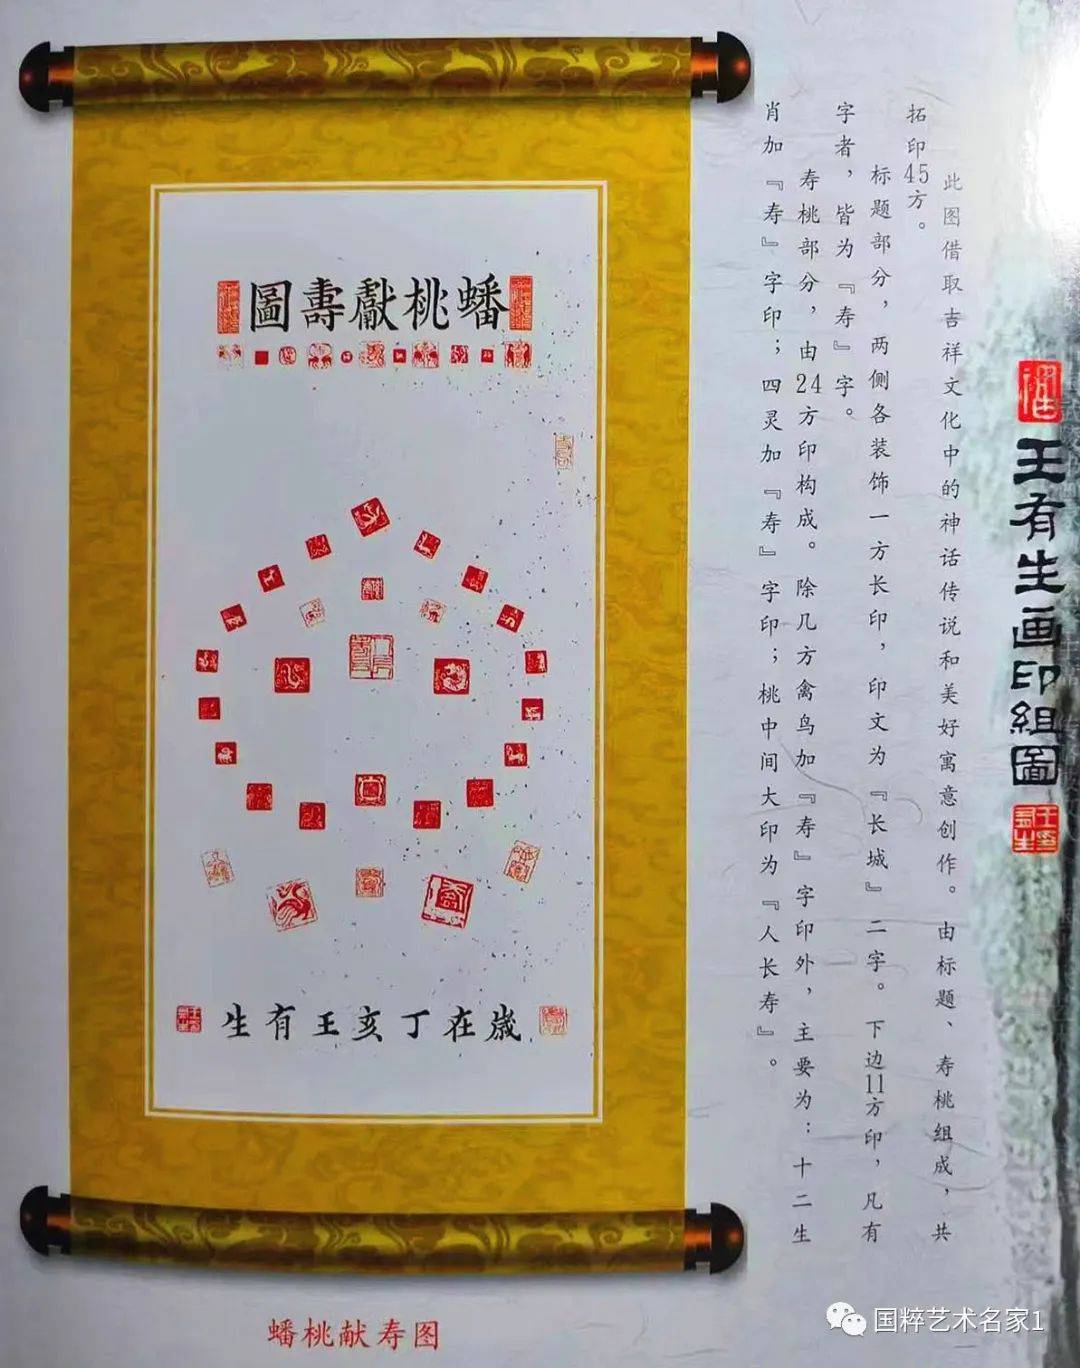 王有生画印組圖
此图借取吉祥文化中的神话传说和美好寓意创作。由标题、寿桃组成，共
拓印45方。
标题部分，两侧各装饰一方长印，印文为『长城』二字。下边11方印，凡有
字者，皆为『寿』字。
寿桃部分，由24方印构成。除几方禽鸟加『寿』字印外，主要为：十二生
肖加『寿』字印；四灵加『寿』字印；桃中间大印为『人长寿』。
蟠桃獻壽圖
歲在丁亥王有生
蟠桃献寿图
国粹艺术名家1